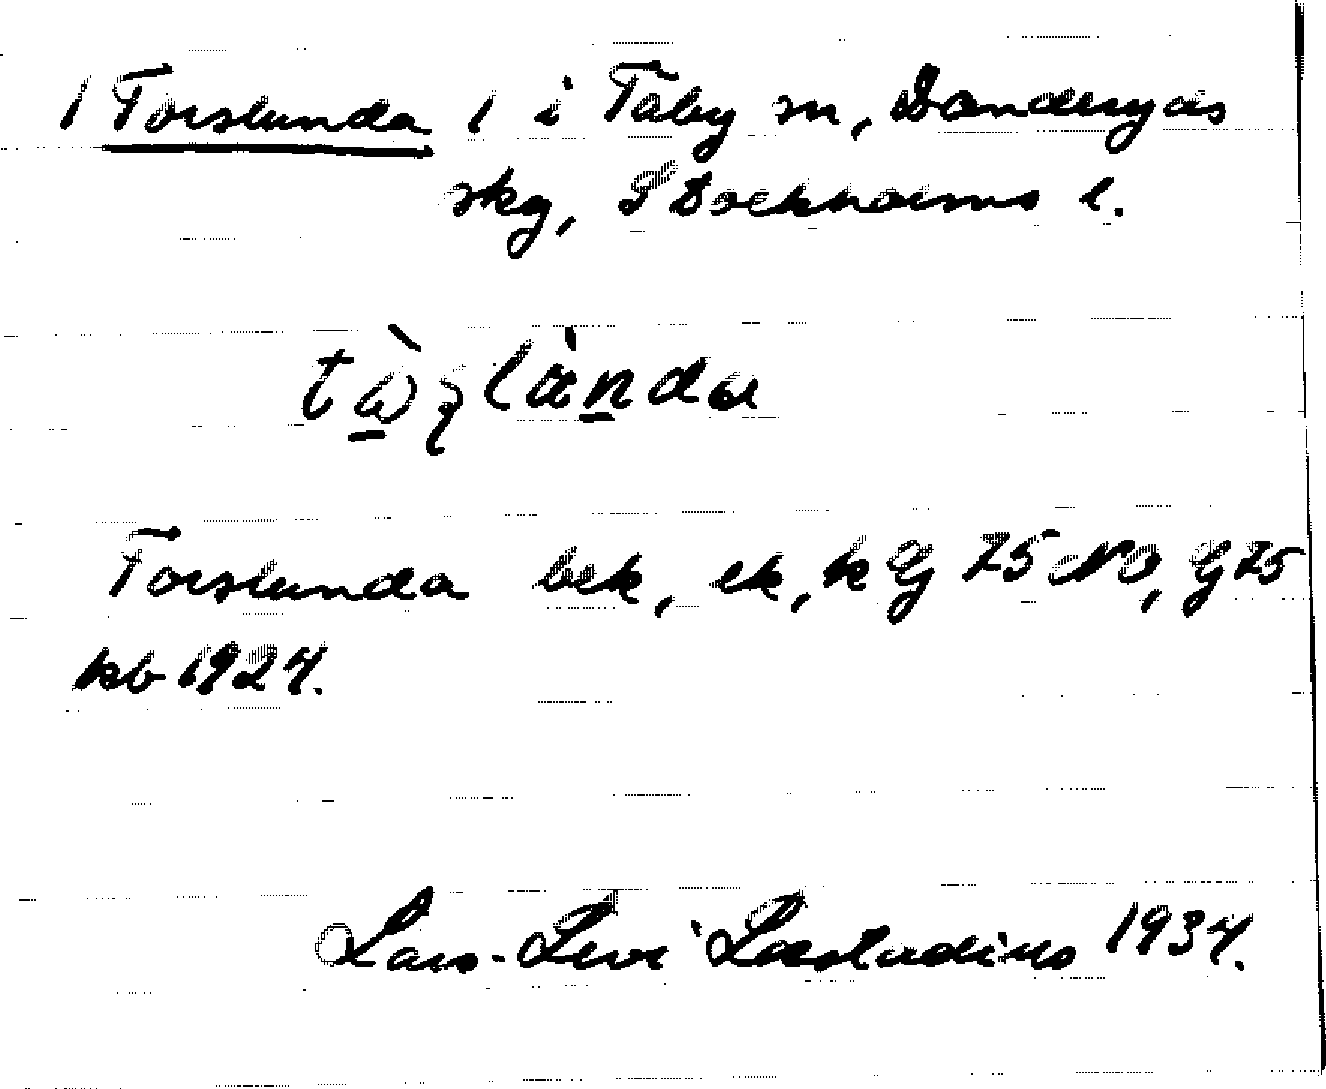 / Torslunda / i Täby sn, Danderyds
skg, Stockholms l.
Torslunda bek, ek, k G 75 NO, G 75
kb 1924.
Lars-Levi Læstadius 1934.